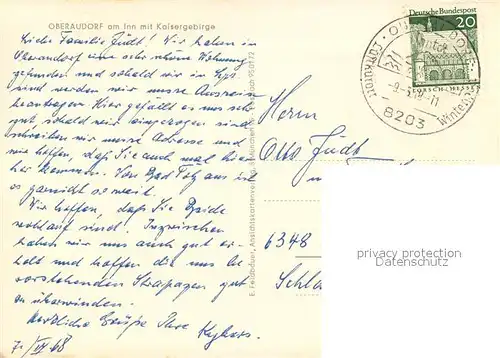 OBERAUDORF am Inn mit Kaisergebirge
Liebe Familie Jüdt! Wir haben in
Oberaudorf eine sehr schöne Wohnung
gefunden und sobald wir in
sind werden wir unsere Ausreise
beantragen. Hier gefällt es uns sehr
gut, sobald wir eingezogen sind
schreiben wir unsere Adresse und
wir hoffen, daß Sie auch mal hier
her kommen. Von Bad Tölz aus ist
es garnicht so weit.
Wir hoffen, daß Sie Beide
wohlauf sind! Inzwischen
haben wir uns auch gut er-
holt und hoffen die uns be
vorstehenden Strapazen gut
zu überwinden.
Herzliche Grüße Ihre
7./IV 68
Deutsche Bundespost
20
LORSCH/HESSEN
OBERAUDORF
8203
Herrn
Otto Jüdt
6348
privacy protection
Datenschutz